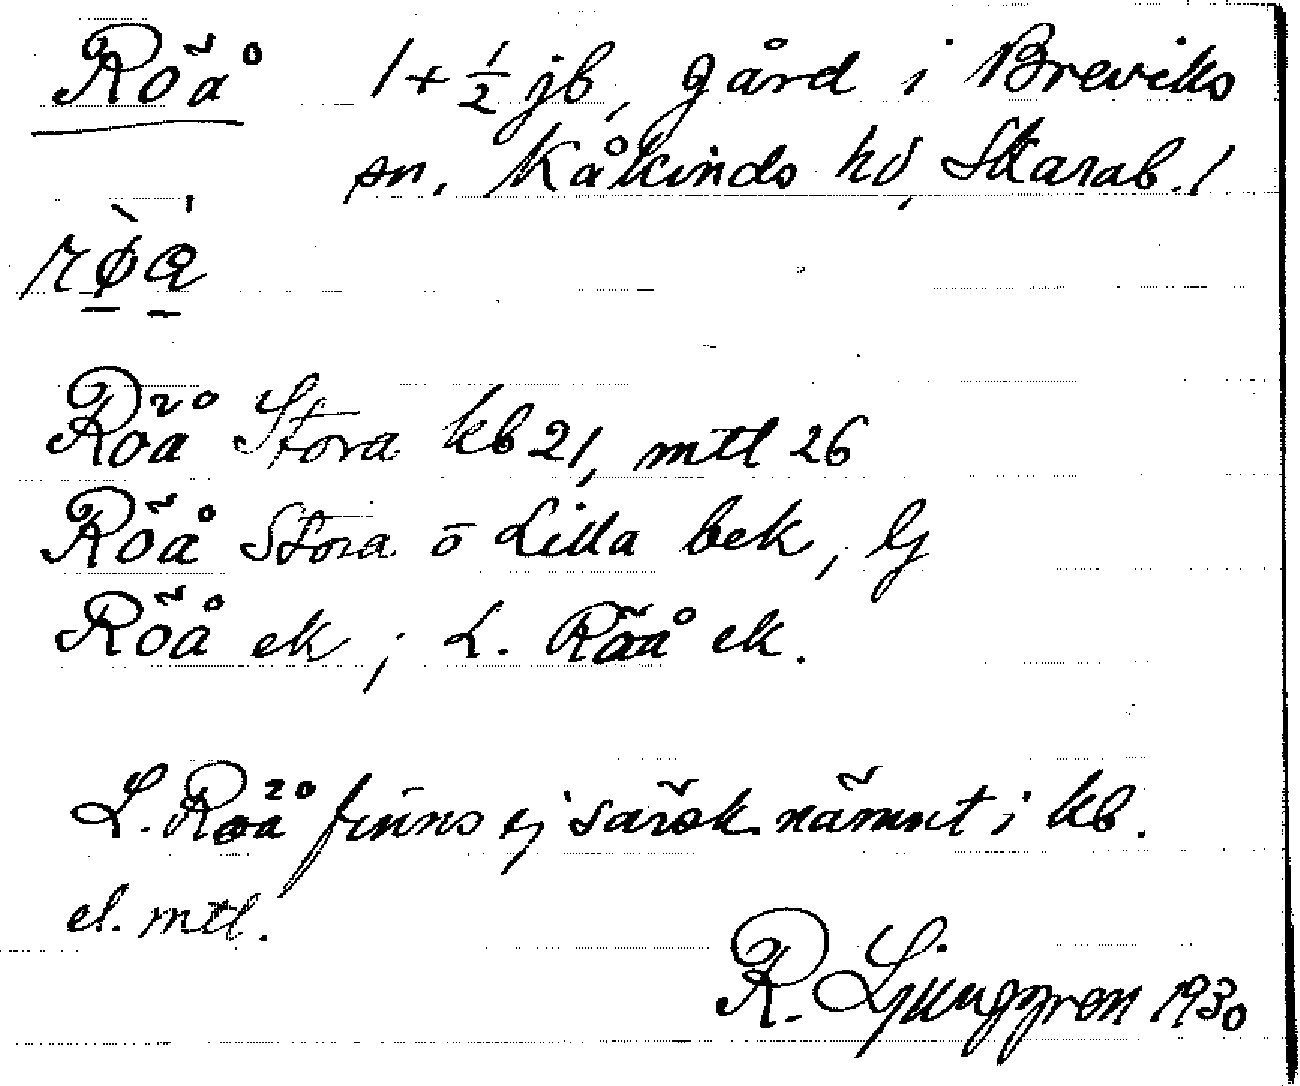 Röå 1+½ jb, gård i Breviks
sn. Kåkinds hd, Skarab. l
Röå Stora kb 21, mtl 26
Röå Stora o Lilla bek, G
Röå ek; L. Röå ek.
L. Röå finns ej särsk. nämnt i kb.
el. mtl.
R. Ljunggren 1930